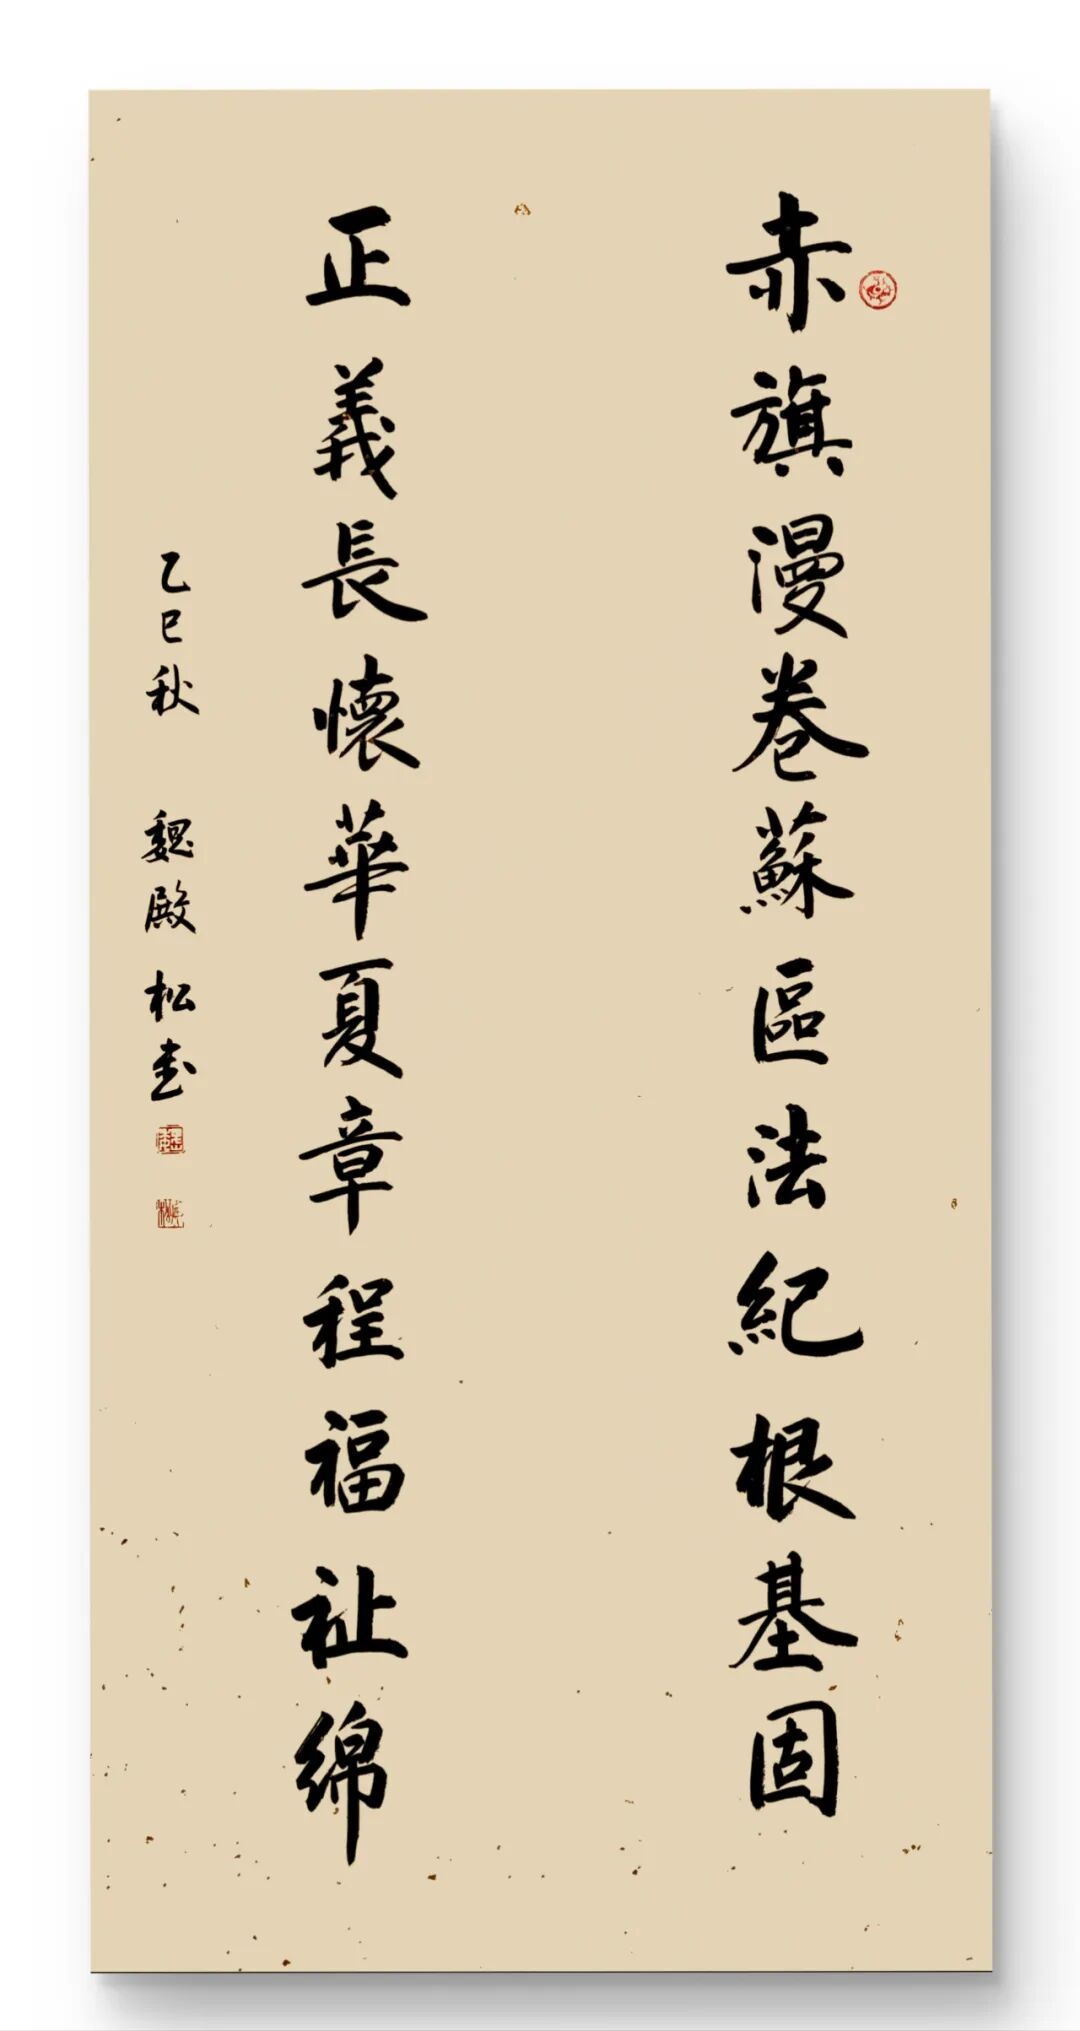 赤旗漫卷蘇區法紀根基固
正義長懷華夏章程福祉綿
乙巳秋 魏殿松書